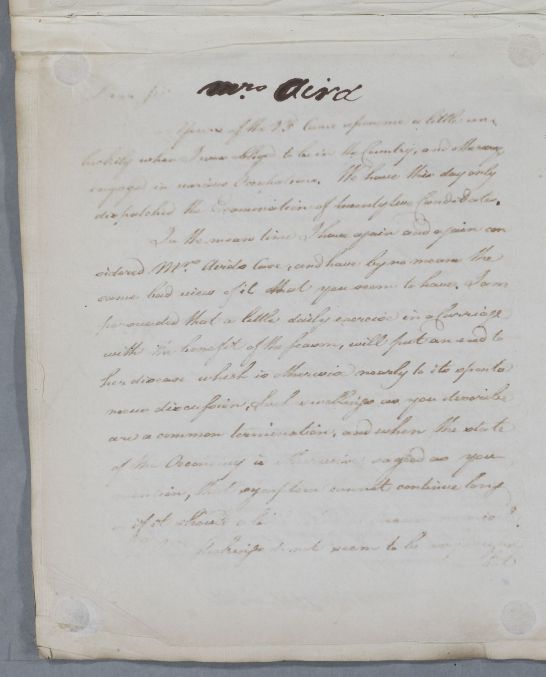 Mrs Aird
Dear Sir
Yours of the 27 came upon me a little un
luckily when I was obliged to be in the Country, and otherways
engaged in various Occupations. We have this day only
dispatched the Examination of twenty two Candidates.
In the mean time I have again and again con
sidered Mrs Airds Case, and have by no means the
same bad view of it that you seem to have. I am
persuaded that a little daily exercise in a Carriage
with the benefit of the Season, will put an end to
her disease which is otherwise nearly to its sponta
neous discussion. Such swellings as you describe
are a common termination, and when the state
of the Oeconomy is otherwise as good as you
mention, that symptom cannot continue long
if it should
do not seem to be